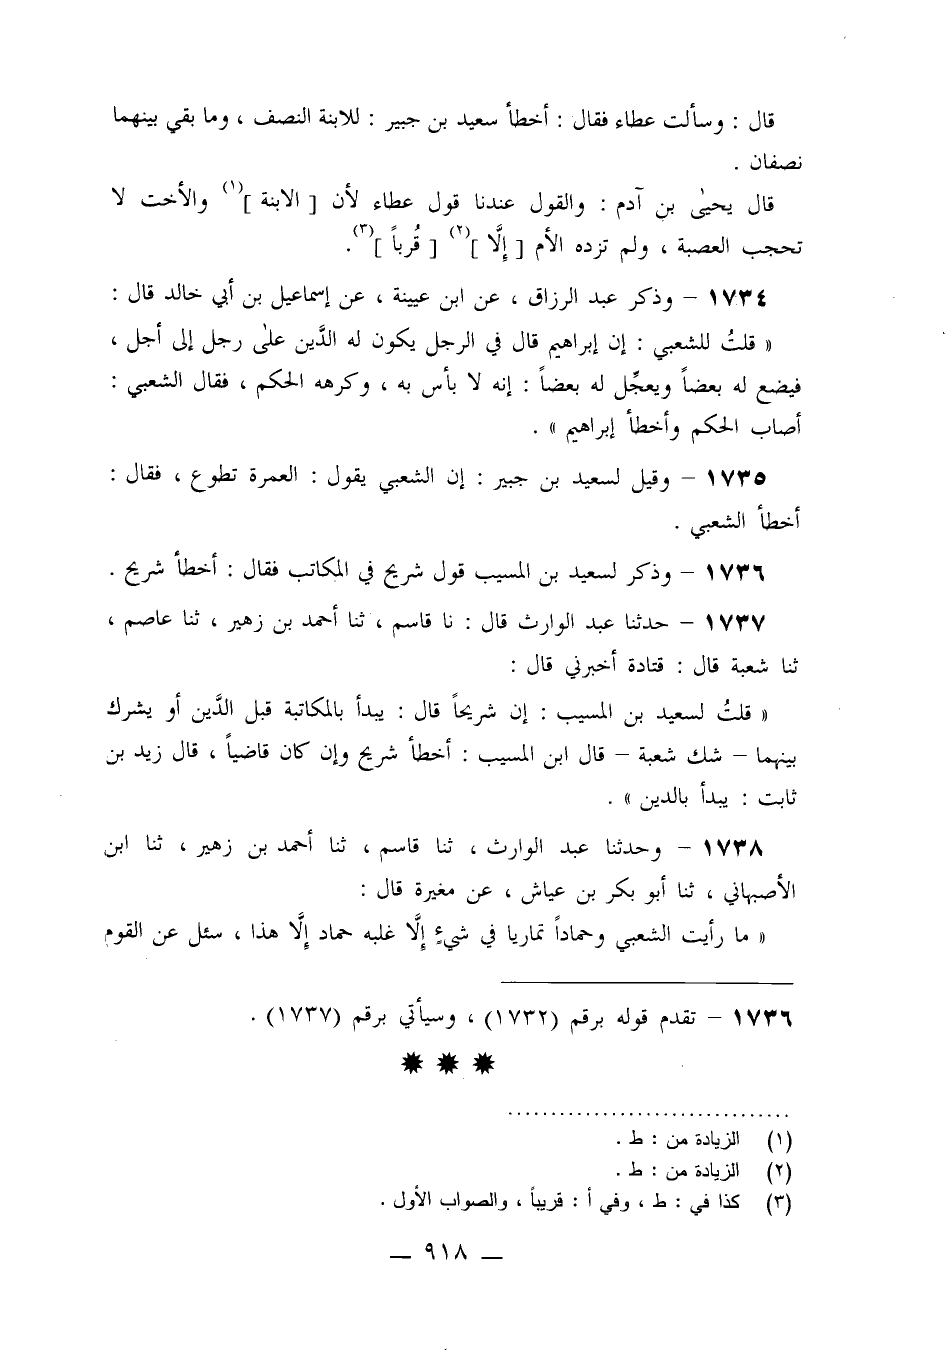 قال : وسألت عطاء فقال : أخطأ سعيد بن جبير : للابنة النصف ، وما بقي بينهما
نصفان .
قال يحيىٰ بن آدم : والقول عندنا قول عطاء لأن [ الابنة ](١) والأخت لا
تحجب العصبة ، ولم تزده الأم [ إلَّا ](٢) [ قُرباً ](٣).
١٧٣٤ – وذكر عبد الرزاق ، عن ابن عيينة ، عن إسماعيل بن أبي خالد قال :
« قلتُ للشعبي : إن إبراهيم قال في الرجل يكون له الدَّين علىٰ رجل إلى أجل ،
فيضع له بعضاً ويعجِّل له بعضاً : إنه لا بأس به ، وكرهه الحكم ، فقال الشعبي :
أصاب الحكم وأخطأ إبراهيم » .
١٧٣٥ – وقيل لسعيد بن جبير : إن الشعبي يقول : العمرة تطوع ، فقال :
أخطأ الشعبي .
١٧٣٦ – وذكر لسعيد بن المسيب قول شريح في المكاتب فقال : أخطأ شريح .
١٧٣٧ – حدثنا عبد الوارث قال : نا قاسم ، ثنا أحمد بن زهير ، ثنا عاصم ،
ثنا شعبة قال : قتادة أخبرني قال :
« قلتُ لسعيد بن المسيب : إن شريحاً قال : يبدأ بالمكاتبة قبل الدَّين أو يشرك
بينهما – شك شعبة – قال ابن المسيب : أخطأ شريح وإن كان قاضياً ، قال زيد بن
ثابت : يبدأ بالدين » .
١٧٣٨ – وحدثنا عبد الوارث ، ثنا قاسم ، ثنا أحمد بن زهير ، ثنا ابن
الأصبهاني ، ثنا أبو بكر بن عياش ، عن مغيرة قال :
« ما رأيت الشعبي وحماداً تماريا في شيءٍ إلَّا غلبه حماد إلَّا هذا ، سئل عن القوم
١٧٣٦ – تقدم قوله برقم (١٧٣٢) ، وسيأتي برقم (١٧٣٧) .
(١) الزيادة من : ط .
(٢) الزيادة من : ط .
(٣) كذا في : ط ، وفي أ : قريباً ، والصواب الأول .
— ٩١٨ —